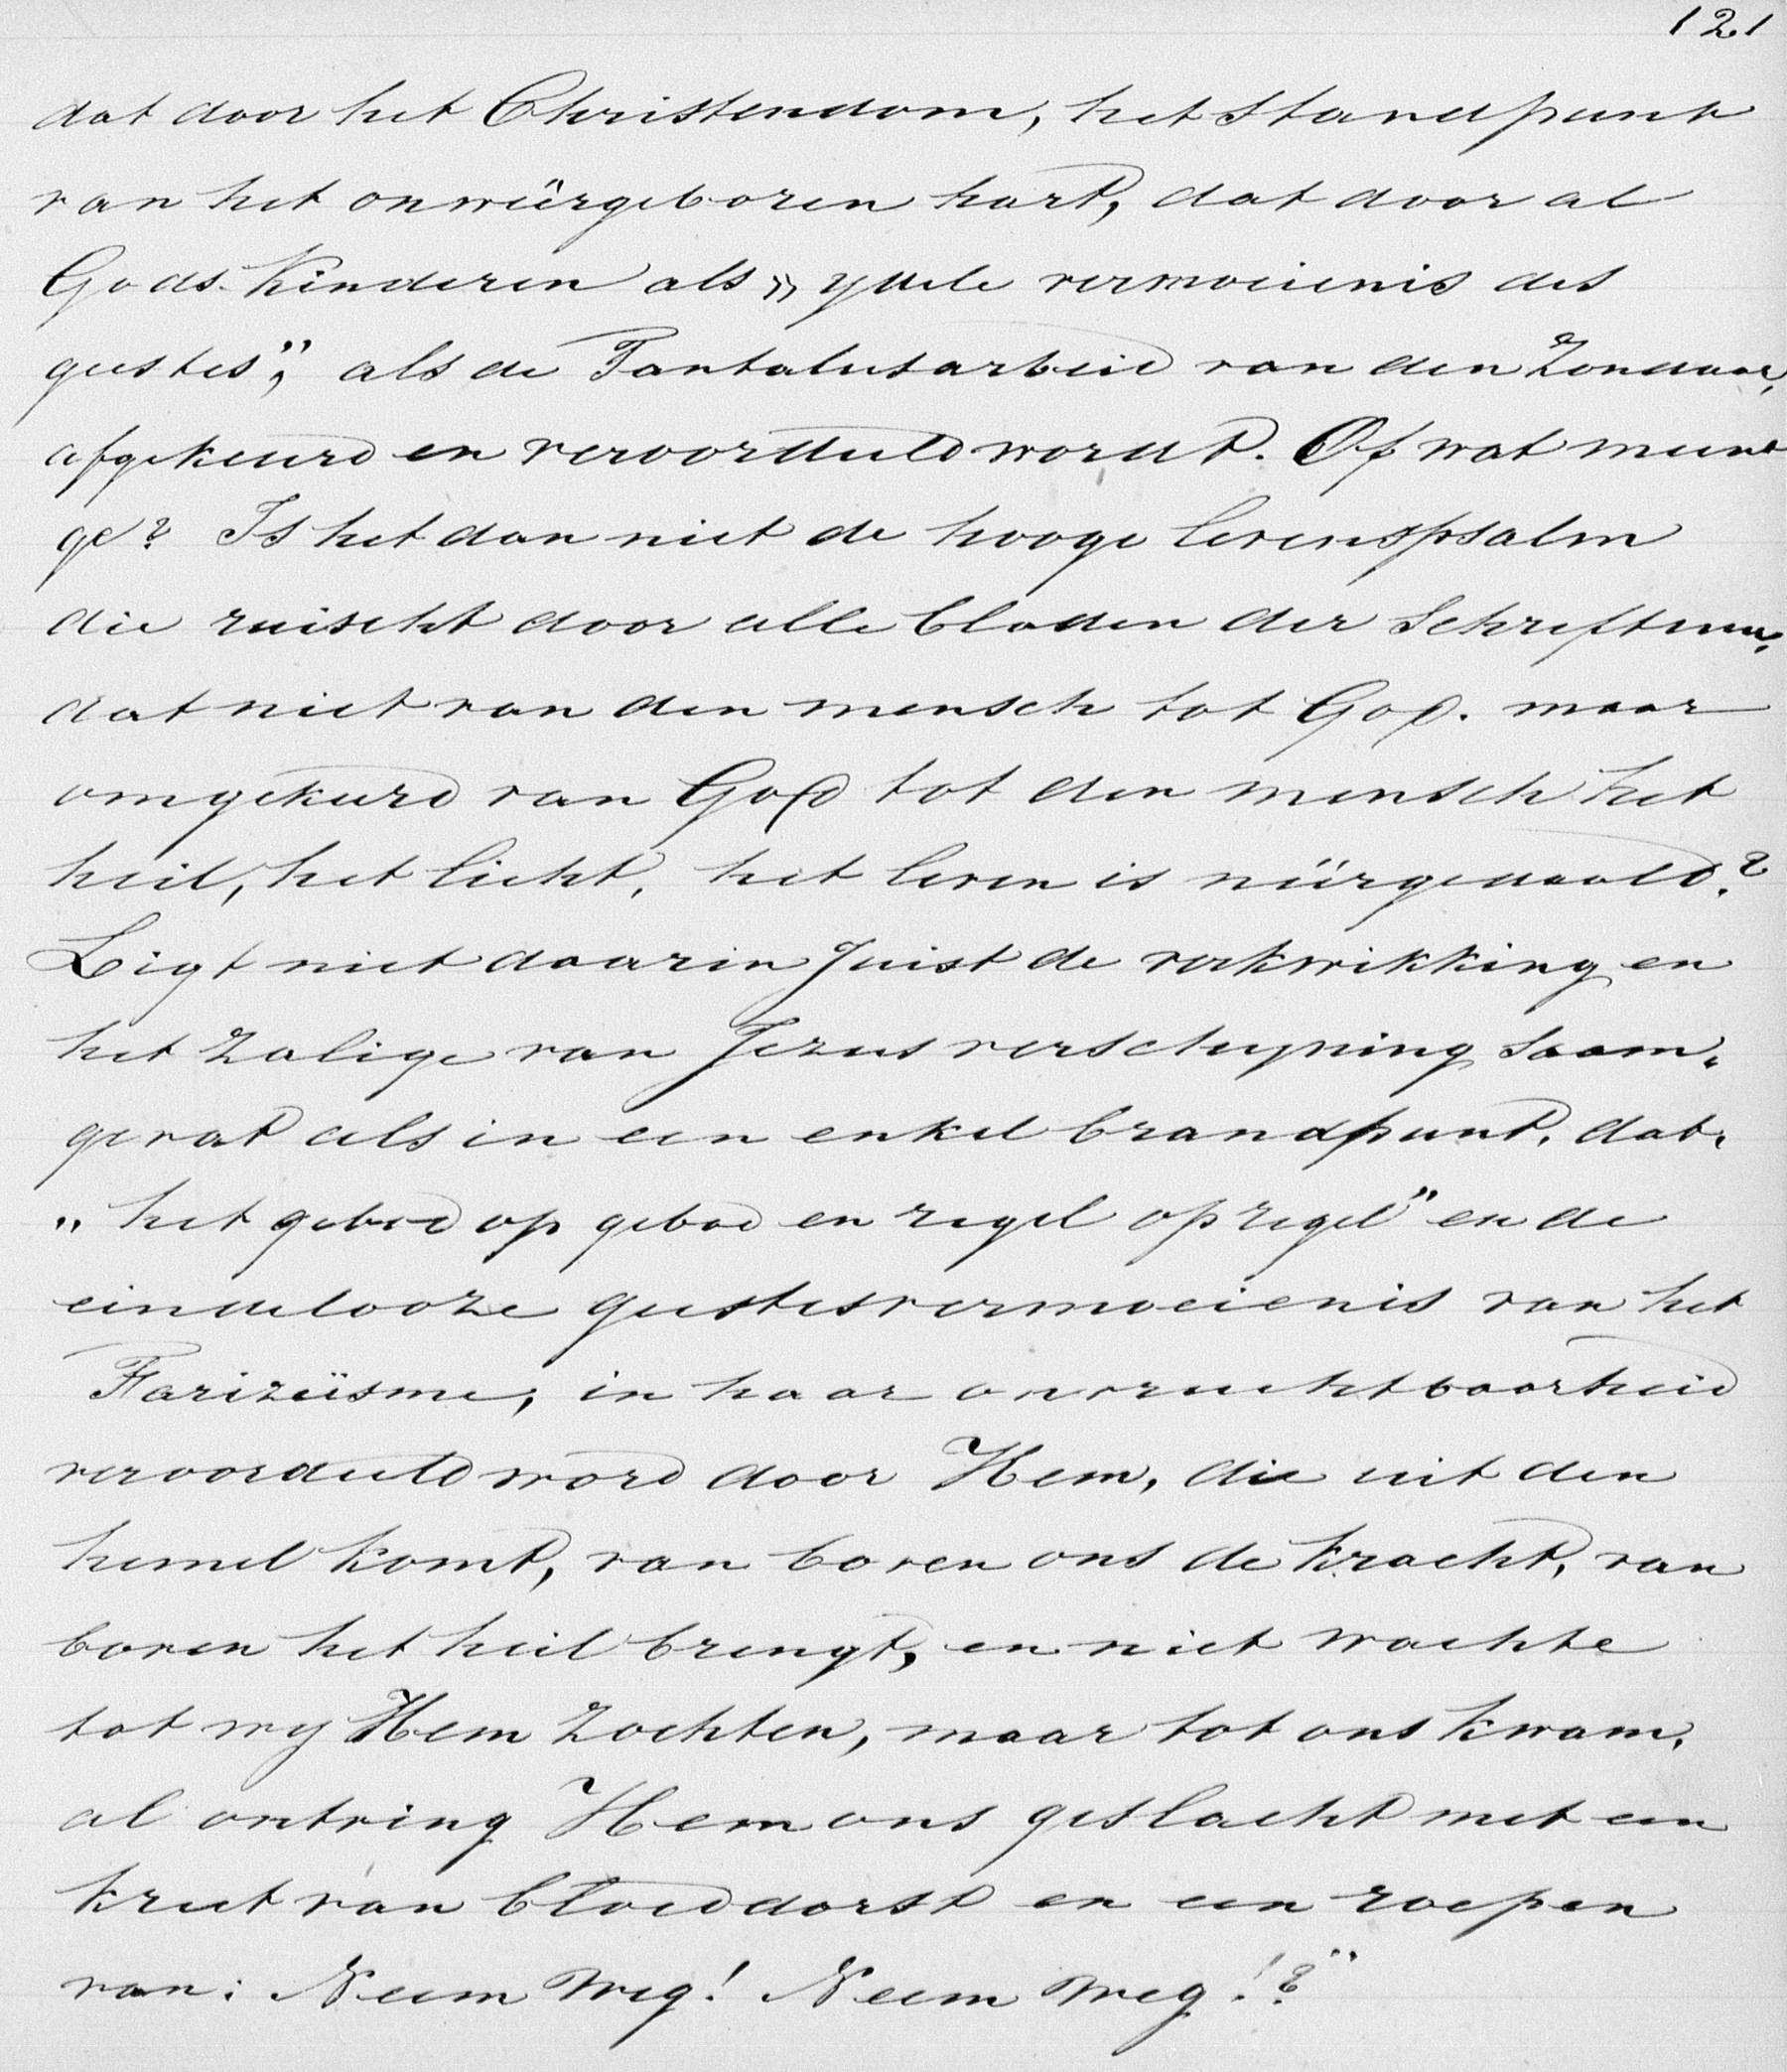 121
dat door het Christendom, het standpunt
van het onweêrgeboren hart, dat door al
Gods kinderen als „ ydele vermoeienis des
geestes”, als de Tantalusarbeid van den Zondaar,
afgekeurd en veroordeeld wordt. Of wat meent
ge? Is het dan niet de hooge levenspsalm
die ruischt door alle bladen der Schriftuur,
dat niet van den mensch tot God. maar
omgekeerd van God tot den mensch het
heil, het licht, het leven is neêrgedaald?
Ligt niet daarin juist de verkwikking en
het zalige van Jezus verschyning saam-
gevat als in een enkel brandpunt, dat,
„ het gebod op gebod en regel op regel” en de
eindelooze geestesvermoeienis van het
Farizeïsme, in haar onvruchtbaarheid
veroordeeld word door Hem, die uit den
hemel komt, van boven ons de kracht, van
boven het heil brengt, en niet wachte
tot wy Hem zochten, maar tot ons kwam,
al ontving Hem ons geslacht met een
kreet van bloeddorst en een roepen
van: Neem weg! Neem weg!?”